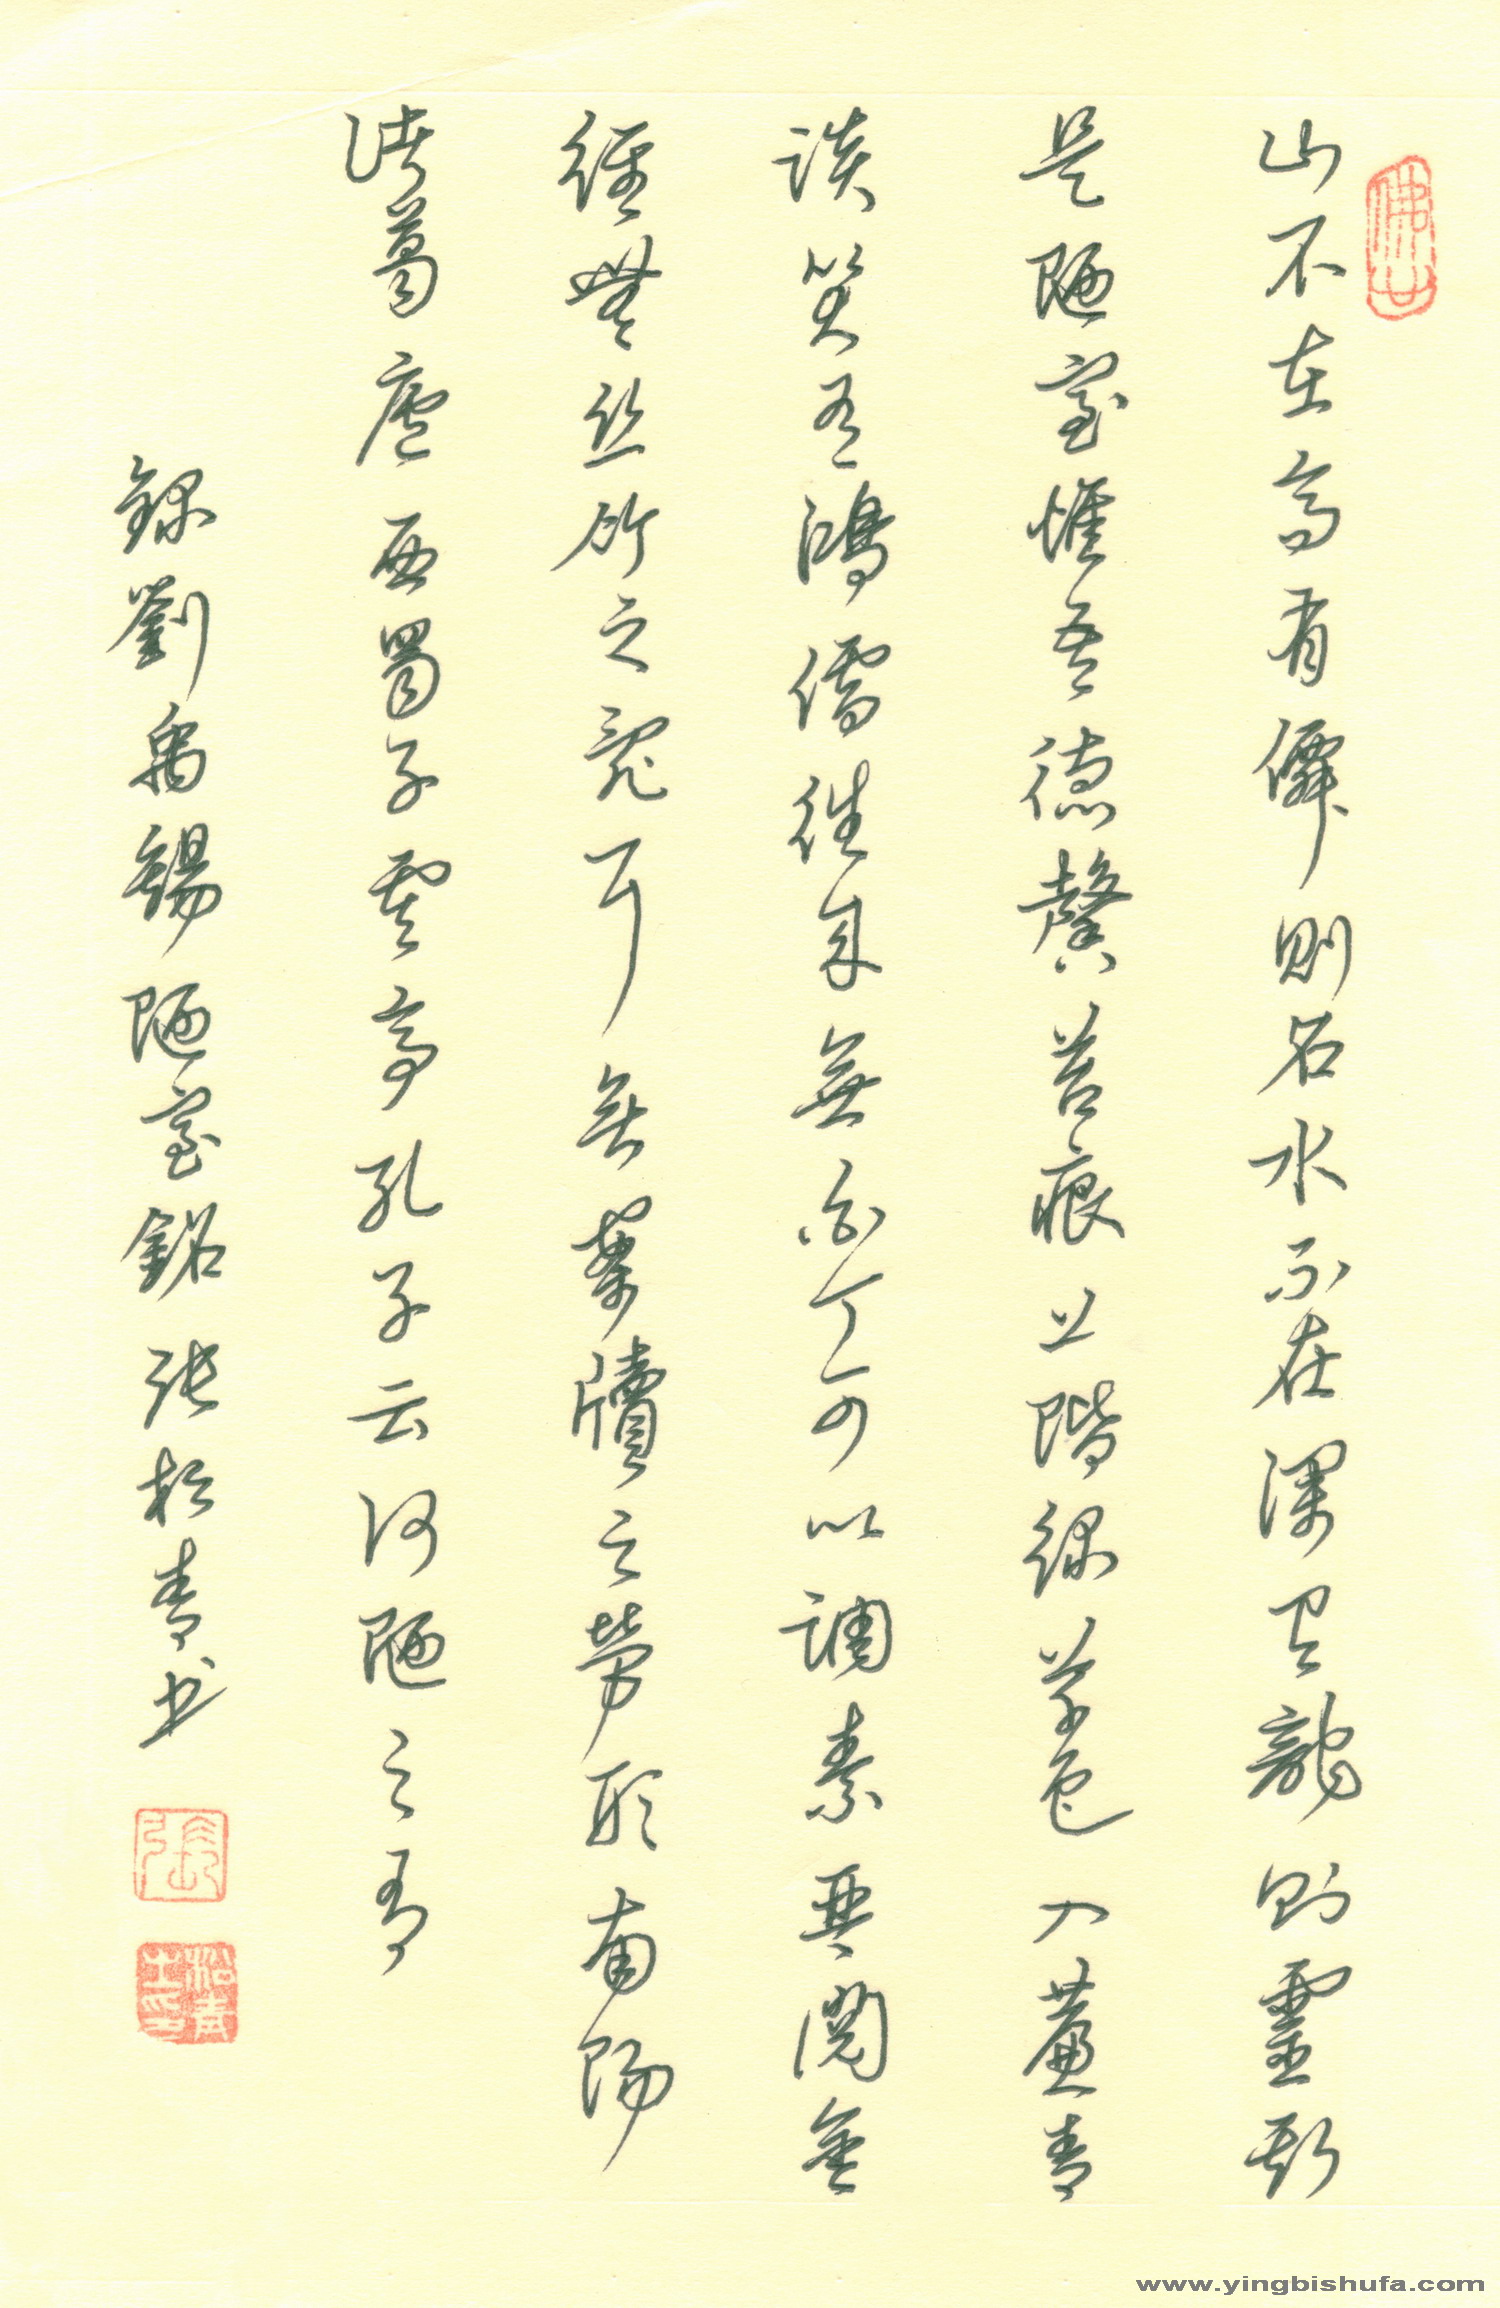 山不在高有僊則名水不在深有龍則靈斯
是陋室惟吾德馨苔痕上階綠草色入簾青
談笑有鴻儒往來無白丁可以調素琴閱金
經無丝竹之亂耳無案牘之勞形南陽
諸葛廬西蜀子雲亭孔子云何陋之有
錄劉禹錫陋室銘張松青书
張
www.yingbishufa.com